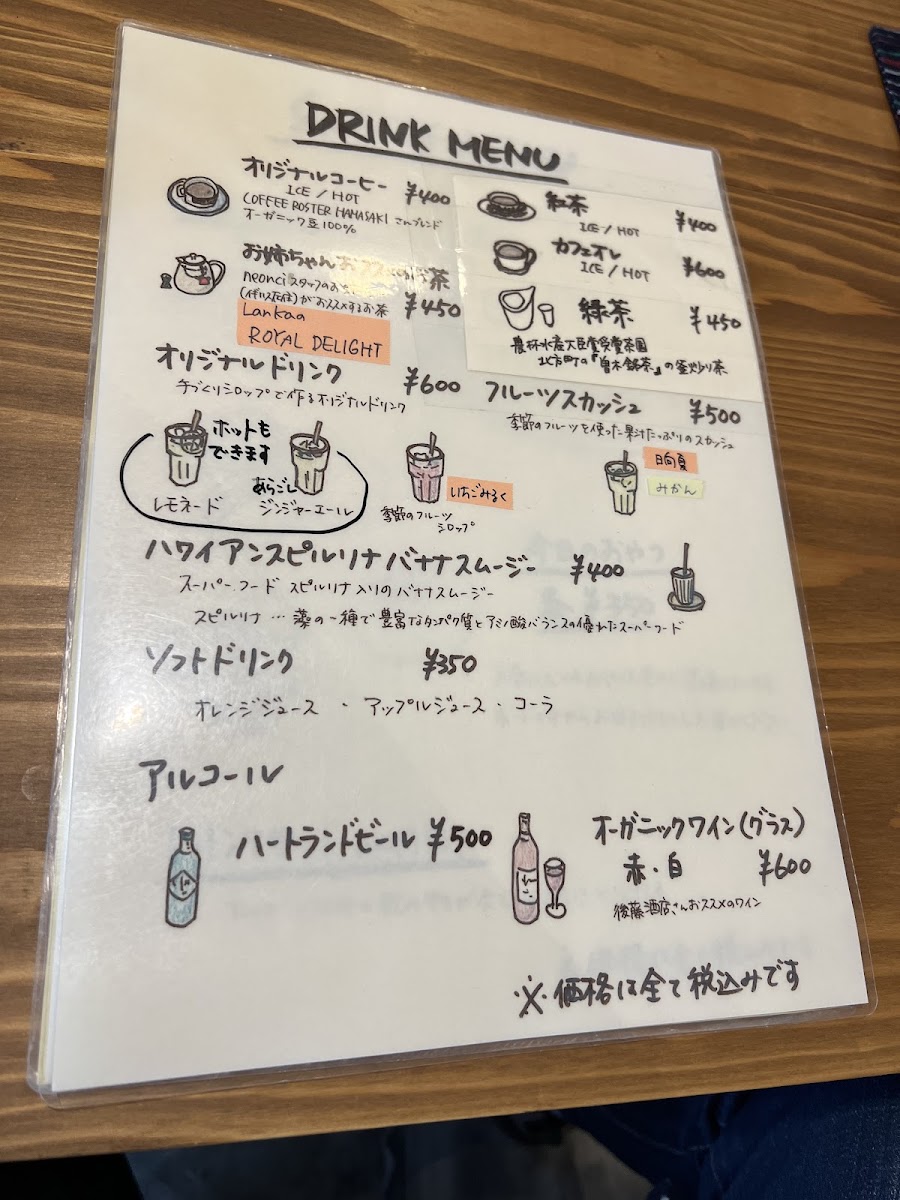 DRINK MENU
オリジナルコーヒー ¥400
ICE / HOT
COFFEE ROSTER HAMASAKI さんブレンド
オーガニック豆100%
お姉ちゃんお
茶
neonciスタッフのお
がおススメするお茶 ¥450
Lankaの
ROYAL DELIGHT
紅茶 ¥400
ICE / HOT
カフェオレ ¥600
ICE / HOT
緑茶 ¥450
農林水産大臣賞受賞茶園
北方町の『曽木銘茶』の釜炒り茶
オリジナルドリンク ¥600
手づくりシロップで作るオリジナルドリンク
ホットも
できます
レモネード
あらごし
ジンジャーエール
いちごみるく
季節のフルーツ
シロップ
フルーツスカッシュ ¥500
季節のフルーツを使った果汁たっぷりのスカッシュ
日向夏
みかん
ハワイアンスピルリナバナナスムージー ¥400
スーパーフード スピルリナ入りのバナナスムージー
スピルリナ … 藻の一種で豊富なタンパク質とアミノ酸バランスの優れたスーパーフード
ソフトドリンク ¥350
オレンジジュース ・ アップルジュース ・ コーラ
アルコール
ハートランドビール ¥500
オーガニックワイン(グラス)
赤・白 ¥600
後藤酒店さんおススメのワイン
※価格は全て税込みです